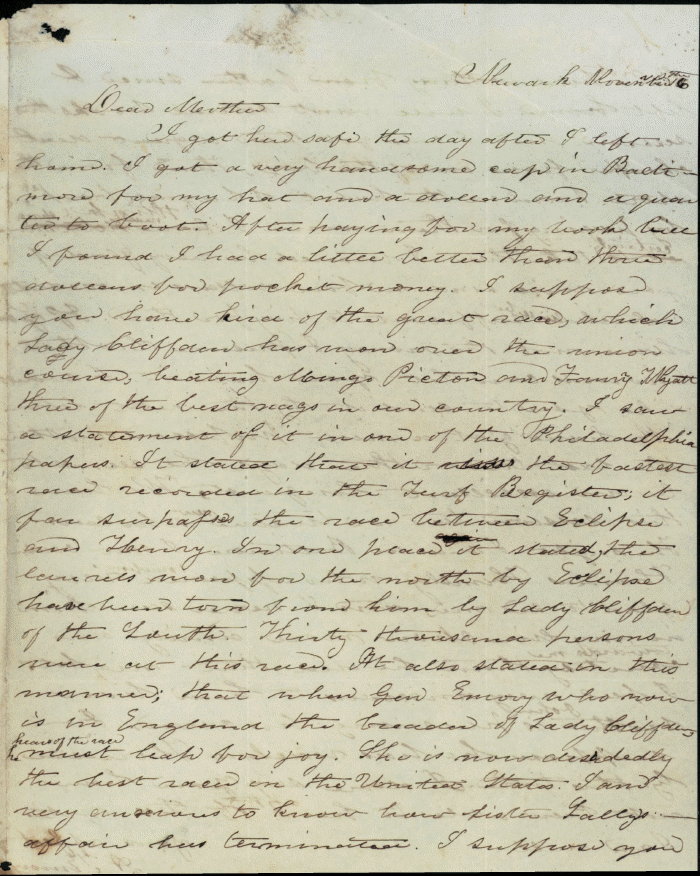 Newark November 16
Dear Mother
I got here safe the day after I left
home. I got a very handsome cap in Balti-
more for my hat and a dollar and a quar
ter to boot. After paying for my book bill
I found I had a little better than three
dollars for pocket money. I suppose
you have hird of the great race, which
Lady Cliffden has won over the union
course, beating Mingo Picton and Fanny Wyatt
three of the best nags in our country. I saw
a statement of it in one of the Philadelphia
papers. It stated that it was the fastest
race recorded in the Turf Register; it
far surpasses the race between Eclipse
and Henry. In one place it stated, the
laurels won for the north by Eclipse
have been torn from him by Lady Cliffden
of the South. Thirty thousand persons
were at this race. It also stated in this
manner; that when Gen Emory who now
is in England the breader of Lady Cliffden
hears of the race
he must leap for joy. Sho is now desidedly
the best racer in the United States. I am
very anxious to know how sister Sallys
affair has terminated. I suppose you